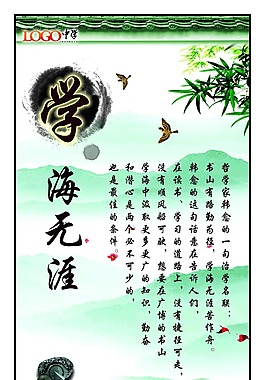 LOGO中学
学海无涯
哲学家韩愈的一句治学名联：
书山有路勤为径，学海无涯苦作舟。
韩愈的这句话意在告诉人们，
在读书、学习的道路上，没有捷径可走，
没有顺风船可驶，想要在广博的书山
学海中汲取更多更广的知识，勤奋
和潜心是两个必不可少的，
也是最佳的条件。